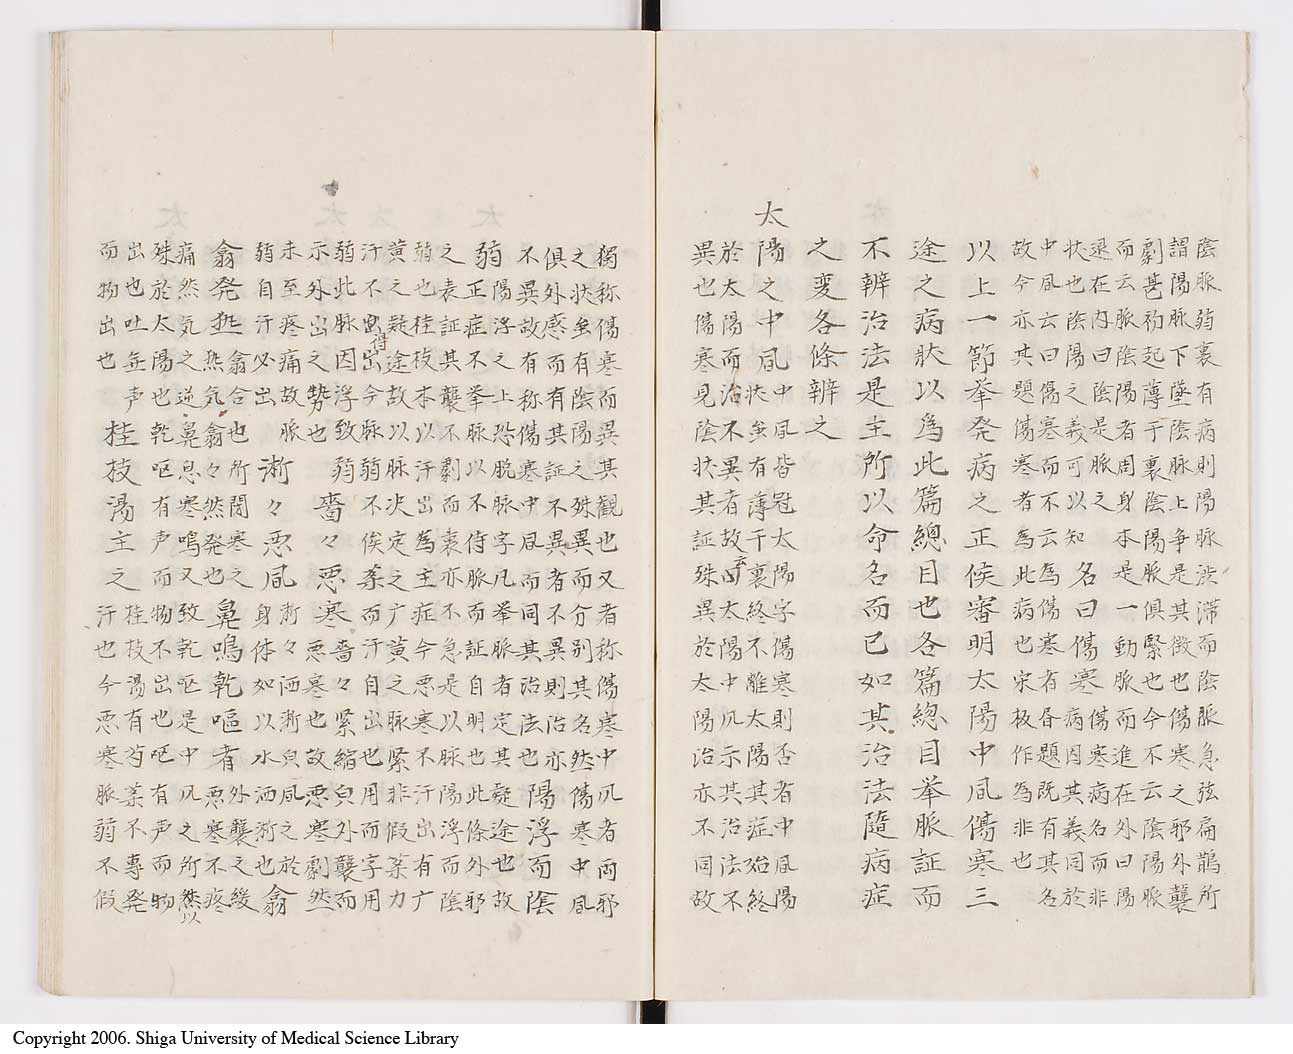 陰脈弱裏有病則陽脈渋滞而陰脈急弦扁鵲所
謂陽脈下墜陰脈上争是其徴也傷寒之邪外襲
劇甚初起薄于裏陰陽脈俱緊也今不云陰陽脈
而云脈陰陽者周身本是一動脈而進在外曰陽
退在内曰陰是脈之
状也陰陽之義可以知
名曰傷寒
傷寒病名而非
病因其義同於
中風云曰傷寒而不云為傷寒者昏題既有其名
故今亦其題傷寒者為此病也宋板作為非也
以上一節挙発病之正候審明太陽中風傷寒三
途之病状以為此篇總目也各篇總目挙脈証而
不辨治法是主所以命名而已如其治法隨病症
之変各條辨之
太陽之中風
中風皆冠太陽字傷寒則否者中風陽
状虽有薄于裏終不離太陽其症始終
於太陽而治不異者故太陽中凡示其治法不
異也傷寒見陰状其証殊異於太陽治亦不同故
獨称傷寒而異其觀也又者称傷寒中凡者両邪
之状虽有陰陽之殊異而分別其名然傷寒中風
俱外感而有其証不異者不異則治亦
不異故有称傷寒中風而同其治法也
陽浮而陰
弱
陽浮之上恐脱脈字凡挙脈者定其疑途也故
正症不挙脈以不待脈而証自明也此條外邪
之表証其襲不劇而裏亦不急是以脈陽浮而陰
弱也桂枝本以汗出為主症今悪寒不汗出有广
黄之疑途故以脈决定之广黄之脈緊非假薬力
汗不得出今脈弱不俟薬而汗自出也用而字用
弱此脈因浮致弱
示外出之勢也
嗇々悪寒
嗇々緊縮皃外襲而
悪寒也故悪寒劇然
未至疼痛故脈
弱自汗必出
淅々悪風
淅々洒淅皃風之於
身体如以水洒淅也
翕
翕発熱
翕合也所閉寒之
熱気翕々然発也
鼻鳴乾嘔者
外襲之緩
悪寒不疼
痛然気之逆鼻息寒鳴又致乾嘔是中凡之所以然
殊於太陽也乾嘔有声而物不出也嘔有声而物
出也吐無声
而物出也
桂枝湯主之
桂枝湯有芍薬不專発
汗也今悪寒脈弱不假